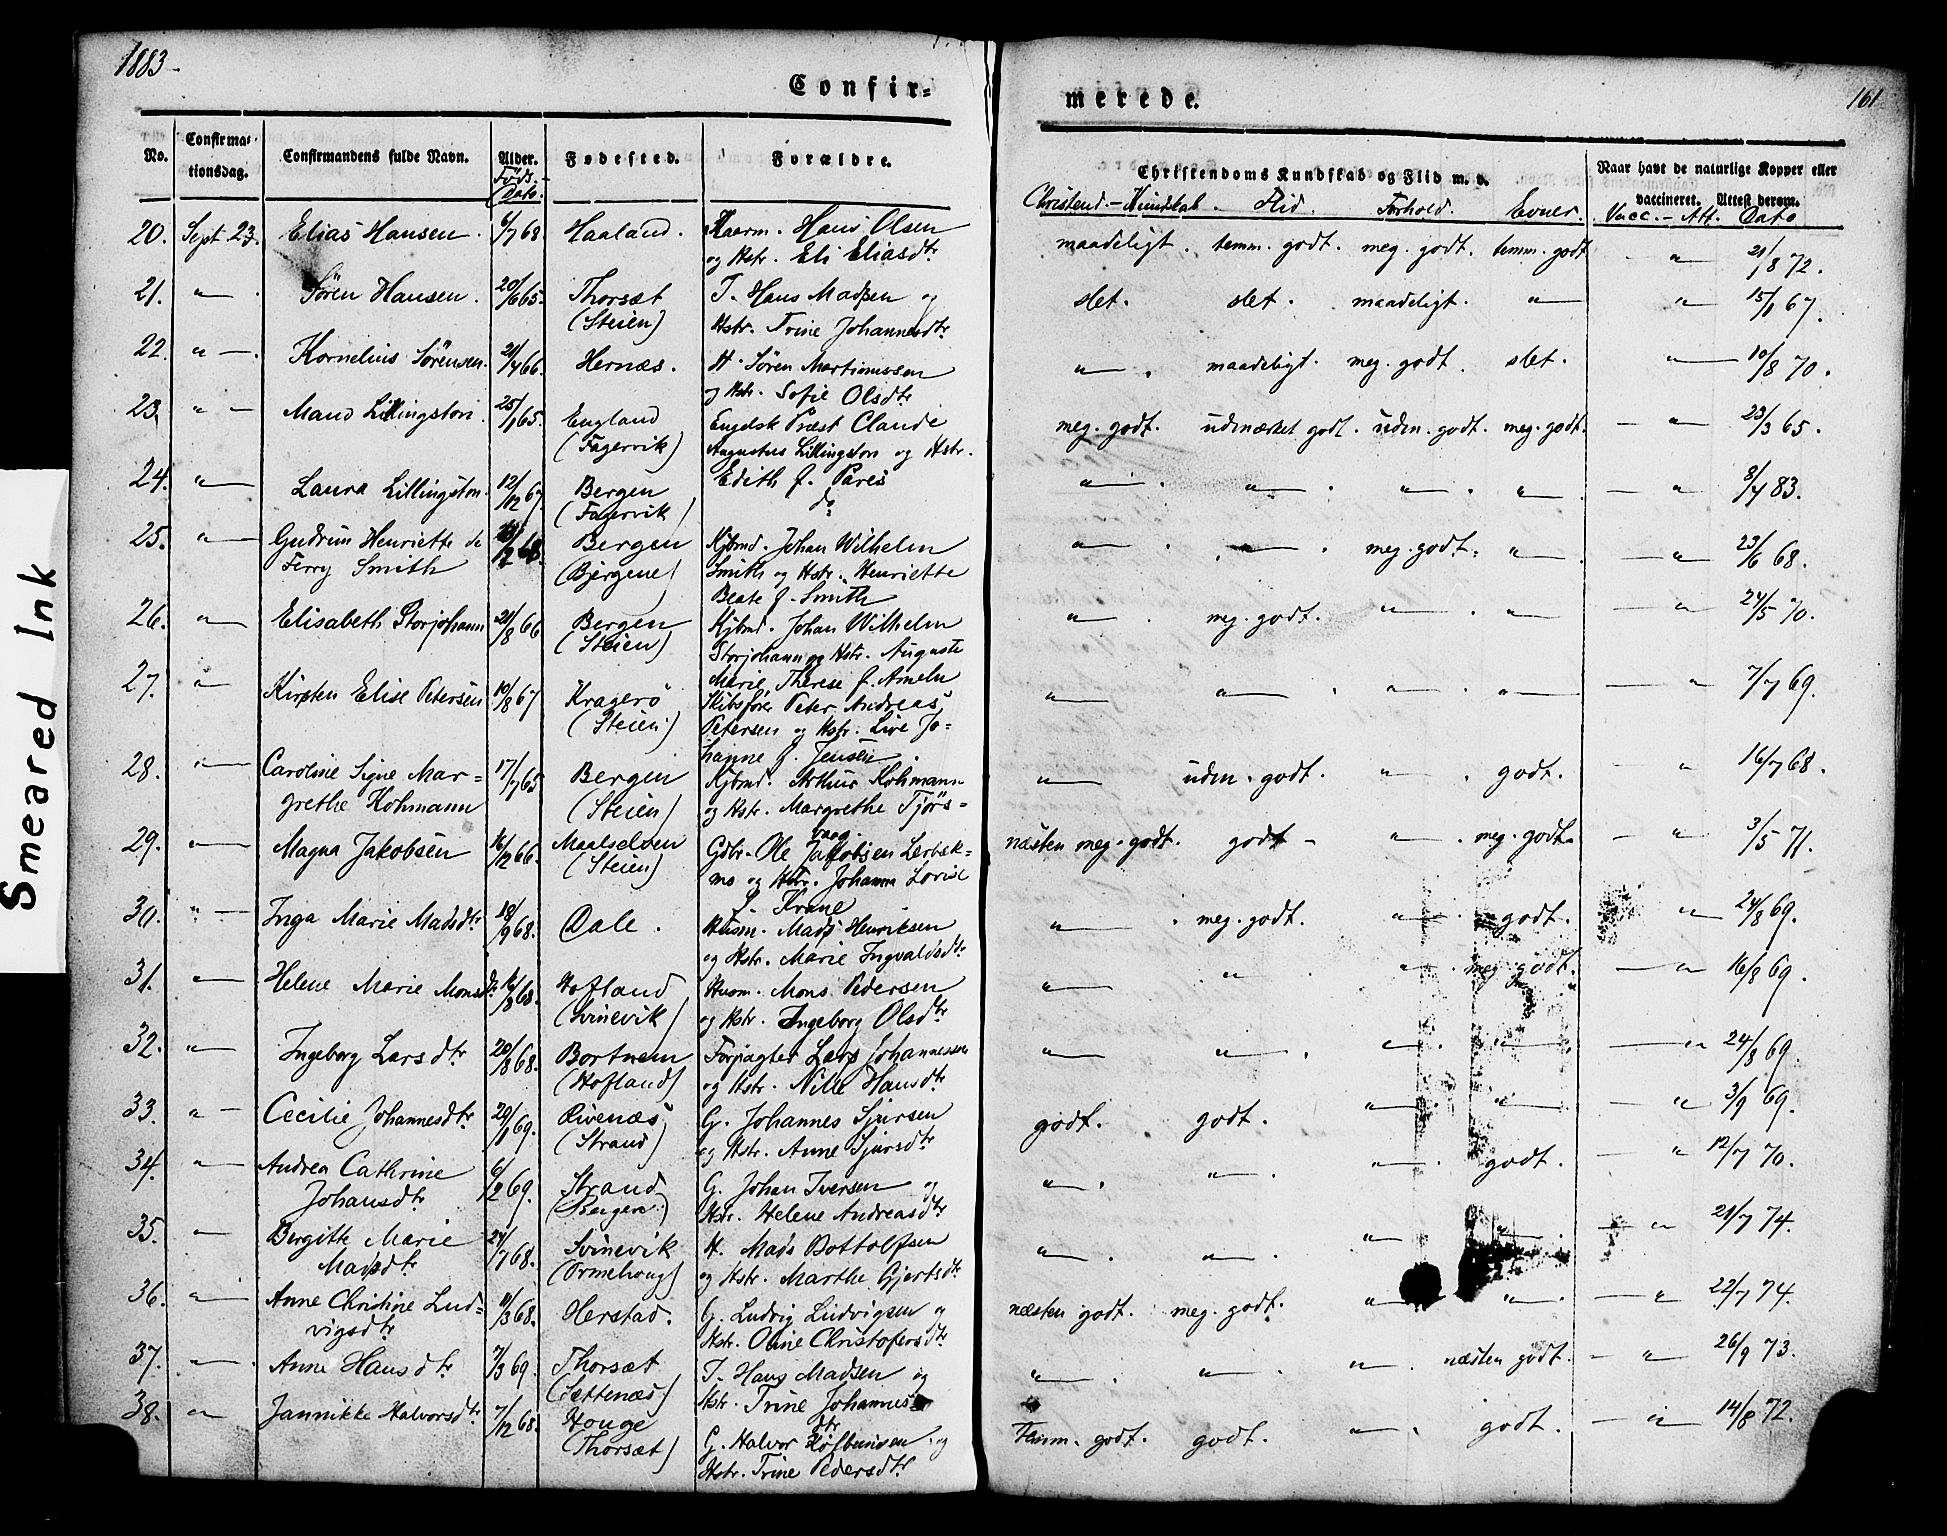 1883.
161
Confir=
merede.
No.
Confirma=
tionsdag.
Confirmandens fulde Navn.
Alder.
Föds.
Dato.
Fødested.
Forældre.
Christendoms Kundskab og Flid m. v.
Christend.-Kundskab. Flid. Forhold. Evner.
Naar havt de naturlige Kopper eller
vaccineret. Attest derom.
Vacc. - Att. Dato
20. Sept. 23. Elias Hansen. 6/7 68. Haaland. Hans Olsen maadeligt. temm. godt. meg. godt. temm. godt — " — 21/8 72.
og Hstr. Eli Eliasdtr
21. " Sören Hansen. 20/6 65. Thorsæt T. Hans Madsen og slet. slet. maadeligt. " — " — 15/1 67.
(Steien) Hstr. Trine Johannesdtr
22. " Kornelius Sörensen. 21/4 66. Hernæs. H. Sören Martinussen " maadeligt. meg. godt. slet. " — 10/8 70.
og Hstr. Sofie Olsdtr
23. " Maud Lillingston. 25/1 65. England Engelsk Præst Claude meg. godt. udmærket godt. udm. godt. meg. godt. — " — 23/3 65.
(Fagervik) Augustus Lillingston og Hstr.
24. " Laura Lillingston. 12/12 67. Bergen Edith f. Pares " " " " — " — 8/4 83.
(Fagervik) do
25. " Gudrun Henriette de 12/2 68. Bergen Kjbmd. Johan Wilhelm " " meg. godt. " — " — 23/6 68.
Ferry Smith (Bjergene) Smith og Hstr. Henriette
Beate f. Smith
26. " Elisabeth Storjohann 21/8 66 Bergen Kjbmd. Johan Wilhelm " meg. godt. " " — " — 24/5 70.
(Steien) Storjohann og Hstr. Auguste
Marie Therese f. Ameln
27. " Kirsten Elise Petersen 10/8 67 Kragerö Skibsförer Peter Andreas " " " " — " — 7/7 69.
(Steien) Petersen og Hstr. Live Jo-
hanne f. Jensen
28. " Caroline Signe Mar= 17/7 65 Bergen Kjbmd. Arthur Kohmann " udm. godt. " godt. — " — 16/7 68.
grethe Kohmann (Steien) og Hstr. Margrethe Tjörs=
vaag.
29. " Magna Jakobsen 16/12 66. Maalselven Gdbr. Ole Jakobsen Lerbæk= næsten meg. godt. godt " meg. godt. — " — 3/5 71.
(Steien) mo og Hstr. Johanna Lovise
f. Krane
30. " Inga Marie Madsdtr 18/9 68. Dale. Husm. Mads Henriksen " meg. godt. " godt. — " — 24/8 69.
og Hstr. Marie Ingvaldsdtr
31. " Helene Marie Monsdtr 16/8 68. Hofland Husm. Mons Pedersen " " " meg. godt. — " — 16/8 69.
(Svinevik) og Hstr. Ingeborg Olsdtr
32. " Ingeborg Larsdtr 20/8 68. Bortnem Forpagter Lars Johannessen " " " " — " — 24/8 69.
(Hofland) og Hstr. Nille Hansdtr
33. " Cecilie Johannesdtr 20/1 69. Rivenæs G. Johannes Sjursen godt. godt. " " — " — 3/9 69.
(Strand) og Hstr. Anne Sjursdtr
34. " Andrea Cathrine 6/2 69. Strand G. Johan Iversen og " " " godt. — " — 12/7 70.
Johansdtr Hstr. Helene Andreasdtr
35. " Bergitte Marie 24/7 68. Svinevik H. Mads Bottolfsen " " " " — " — 21/7 74.
Madsdtr (Ormehoug) og Hstr. Marthe Gjertsdtr
36. " Anne Christine Lud= 11/3 68. Herstad. G. Ludvig Ludvigsen og næsten godt. meg. godt. " " — " — 22/7 74.
vigsdtr Hstr. Oline Christofersdtr
37. " Anne Hansdtr 7/3 69. Thorsæt T. Hans Madsen og " " " næsten godt. — " — 26/9 73.
(Sættenæs) Hstr. Trine Johannes
dtr
38. " Jannikke Halvorsdtr 7/12 68. Houge G. Halvor og Temm. godt. godt. " godt. — " — 14/8 72.
(Thorsæt) Hstr. Trine Pedersdtr
Smeared Ink